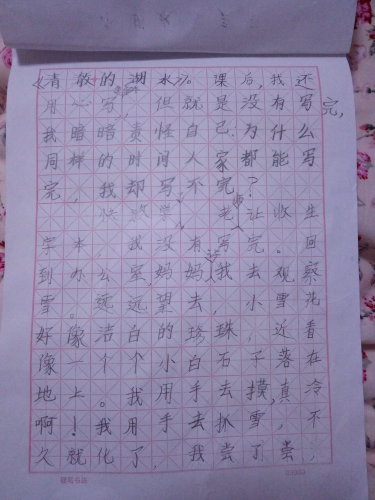 《清澈的湖水》。课后,我还
用心写,但就是没有写完,
我暗暗责怪自己.为什么
同样的时间人家都能写
完,我却写不完?
快放学,老师让收生
字本,我没有写完。回
到办公室,妈妈让我去观察
雪。远远望去,小雪花
好像洁白的珍珠,近看
像一个个小白石子落在
地上。我用手去摸,真冷
啊!我用手去抓雪,不
久就化了,我尝了尝,
硬笔书法